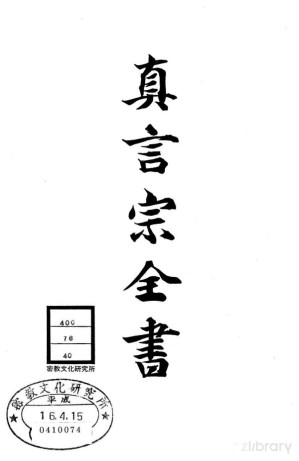 真言宗全書
400
76
40
密教文化研究所
★密教文化研究所★
平成
16.4.15
0410074
zlibrary